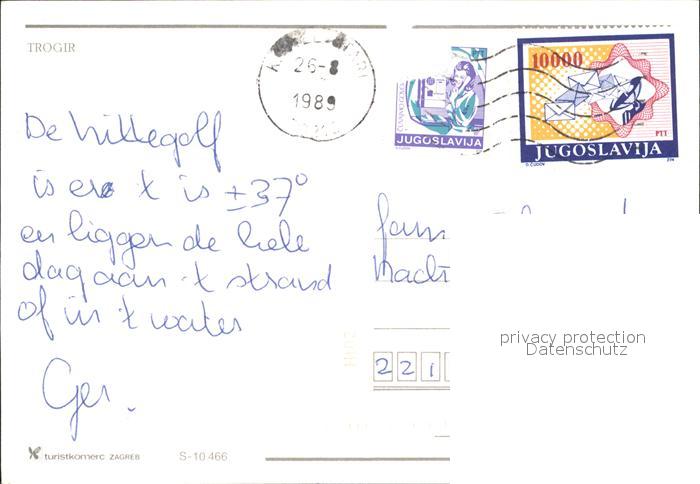 TROGIR
26-8
1989
ČUVAJMO GOVOR.
JUGOSLAVIJA
10000
PTT
JUGOSLAVIJA
De hittegolf
is er 't is ±37°
en liggen de hele
dag aan 't strand
of in 't water
Ger.
Fam
221
privacy protection
Datenschutz
turistkomerc ZAGREB
S-10 466